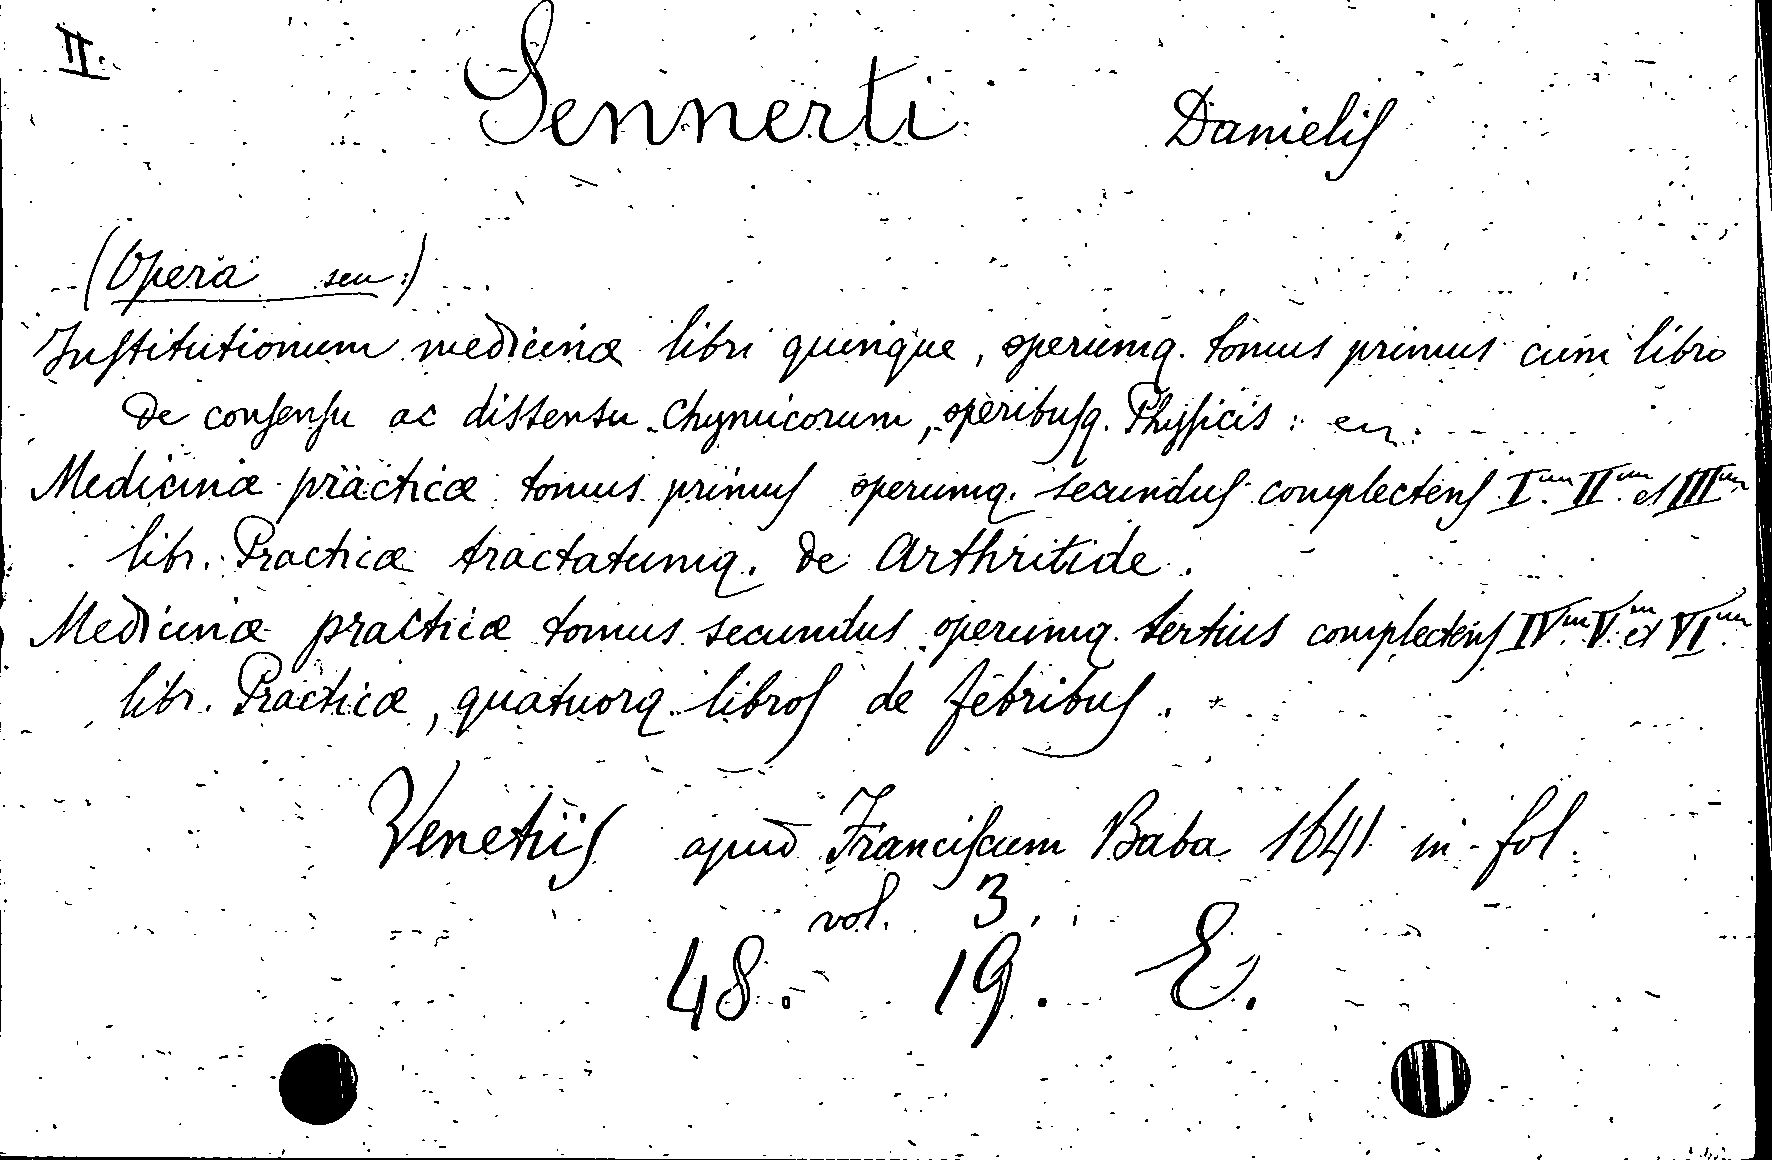 II.
Sennerti Danielis
(Opera seu:)
Institutionum medicinæ libri quinque, operumq. tomus primus cum libro
de consensu ac dissensu Chymicorum, operibusq. Physicis:
Medicinæ practicæ tomus primus operumq. secundus complectens Ium IIum et IIIum
libr. Practicæ tractatumq. de Arthritide.
Medicinæ practicæ tomus secundus operumq. tertius complectens IVum Vm et VIum
libr. Practicæ, quatuorq. libros de febribus.
Venetiis apud Franciscum Baba 1641 in fol.
vol. 3.
48. 19. E.